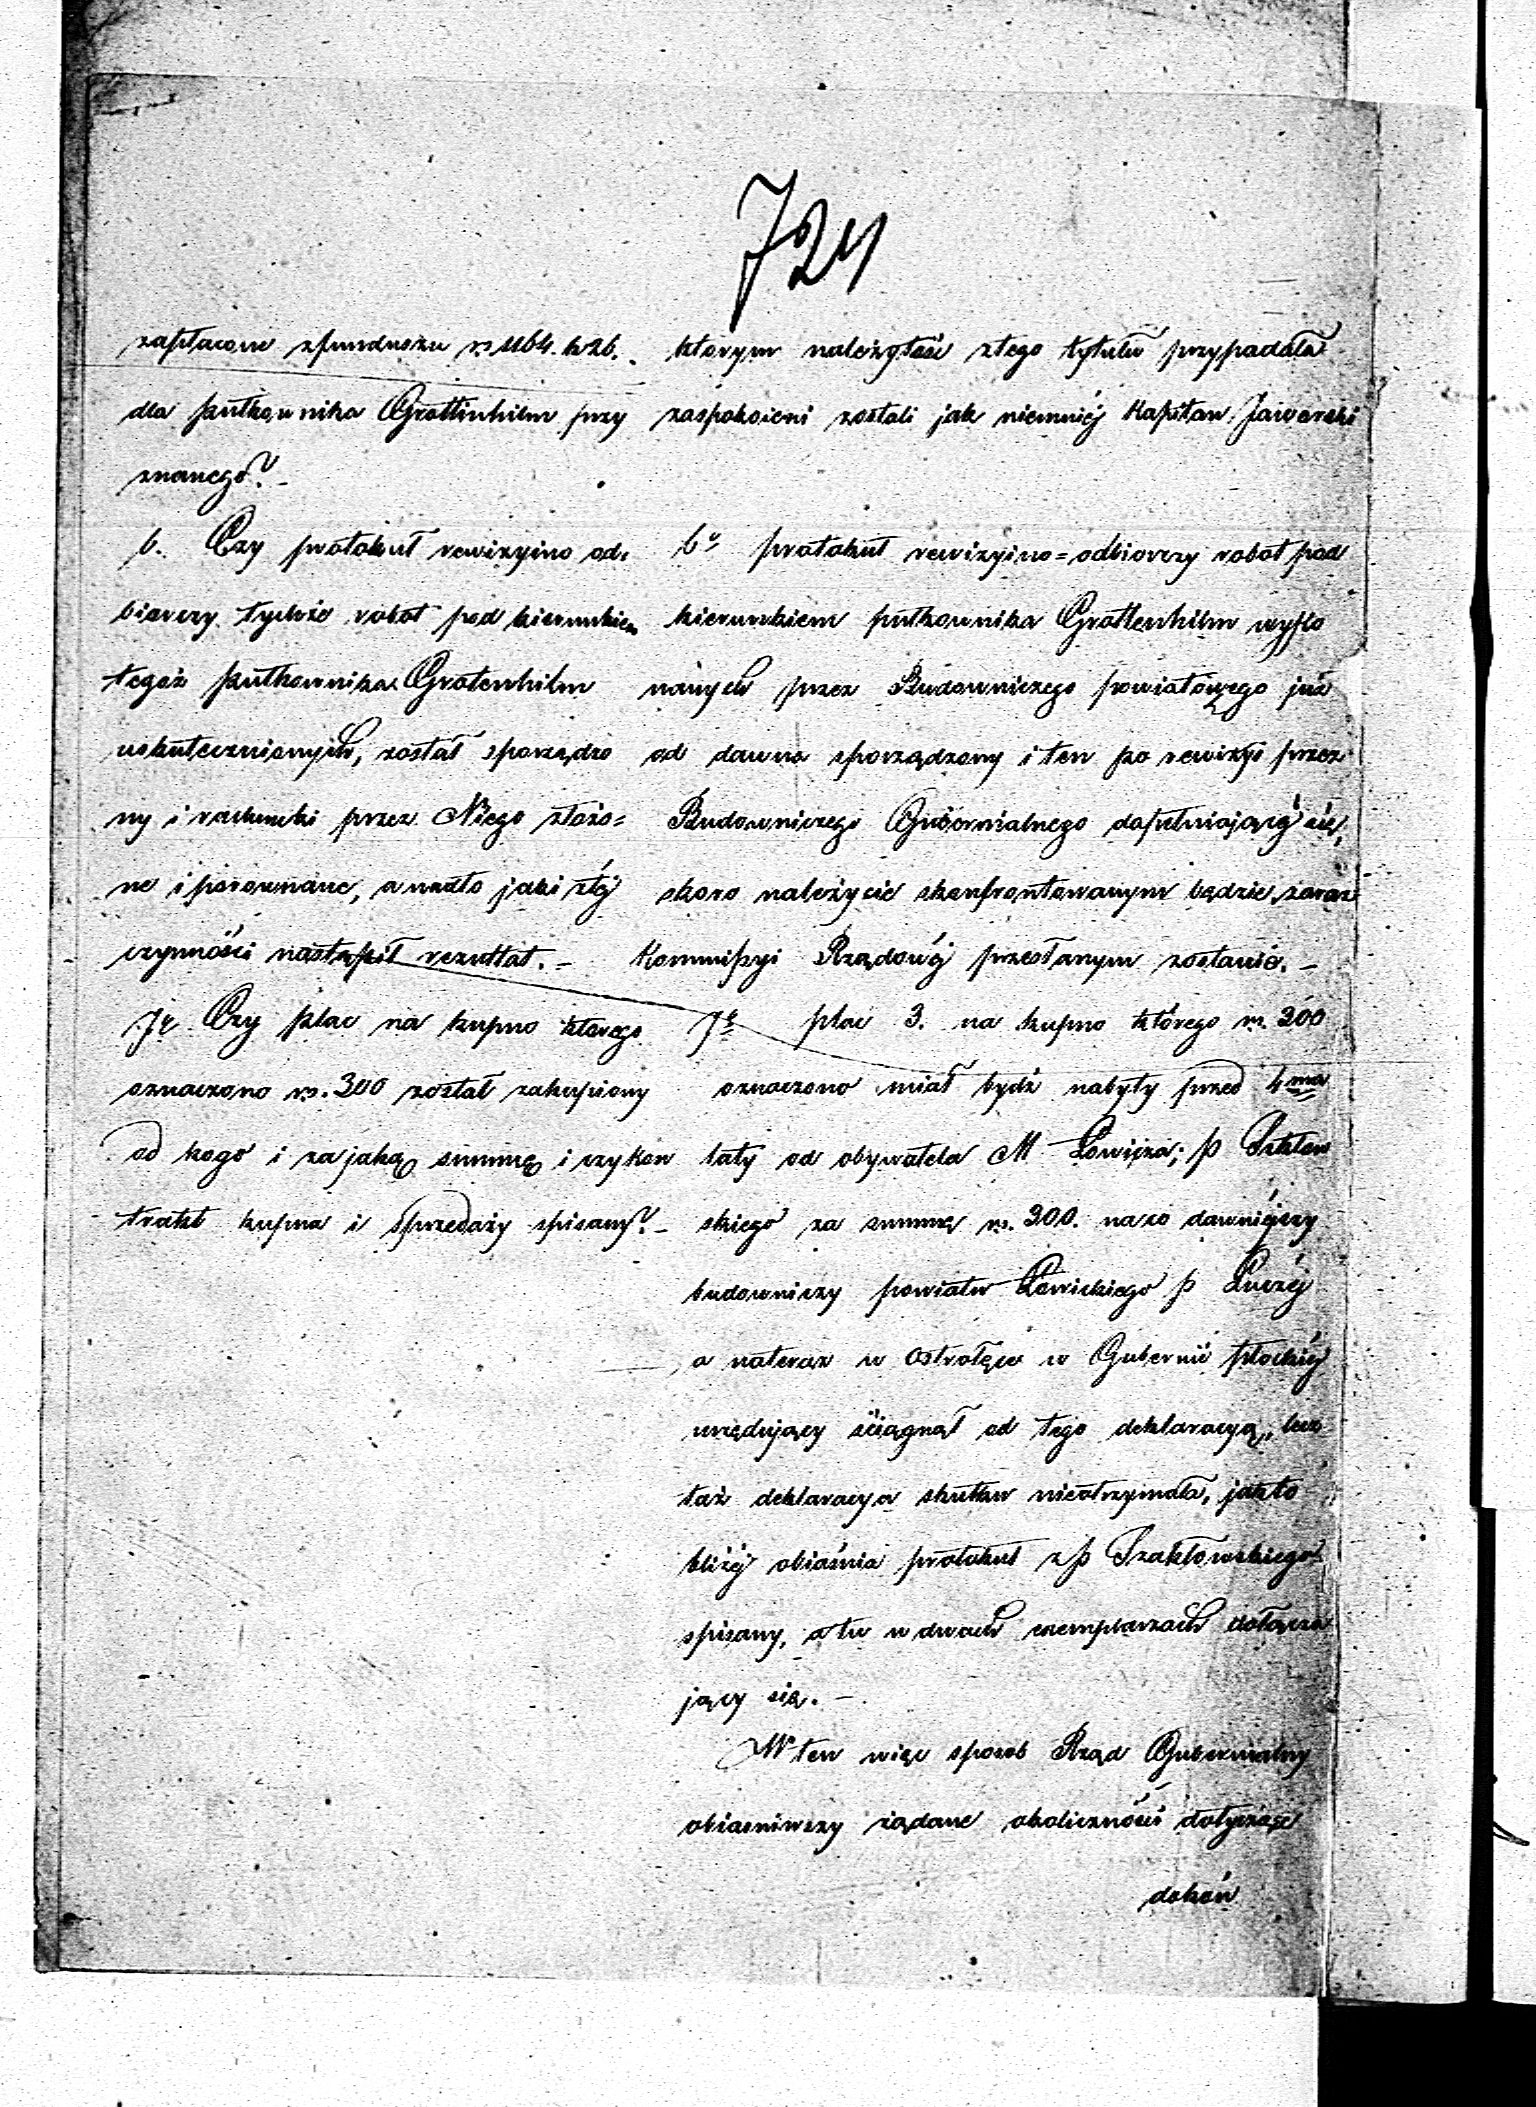 724
zapłacone z funduszu rs 1164. k 26.
dla pułkownika Grottenhilm przy
znanego? –
6. Czy protokuł rewizyino od=
biorczy tychże robót pod kierunkiem
tegoż pułkownika Grotenhilm
uskutecznionych, został sporządzo
ny i rachunki przez Niego złożo=
ne i porównane, a nadto jaki z tej
czynności nastąpił rezultat. –
7e. Czy plac na kupno którego
oznaczono rs. 300 został zakupiony
od kogo i za jaką summę i czy kon
trakt kupna i sprzedaży spisany? –
którym należytość z tego tytułu przypadała
zaspokoieni zostali jak niemniéj Kapitan Jaworski
6o protokuł rewizyino=odbiorczy robot pod
kierunkiem pułkownika Grottenhilm wyko
nanych przez Budowniczego powiatowego już
od dawna sporządzony i ten po rewizyi przez
Budowniczego Gubernialnego dopełniającéj się,
skoro należycie skonfrontowanym będzie, zaraz
Kommissyi Rządowéj przesłanym zostanie. –
7e plac 3. na kupno którego rs. 300
oznaczono miał bydź nabyty przed 4ma
laty od obywatela M Łowicza; p Szkłow
skiego za summę rs. 300. na co dawniejszy
budowniczy powiatu Łowickiego p
a nateraz w Ostrołęce w Gubernii płockiéj
urzędujący ściągnął od tego deklaracyą, lecz
taż deklaracya skutku nieotrzymała, jak to
bliżéj obiaśnia protokuł z p Szakłowskiego
spisany, a tu w dwóch exemplarzach dołącza
jący się. –
W ten więc sposob Rząd Gubernialny
obiasniwszy żądane okoliczności dotyczące
dokoń